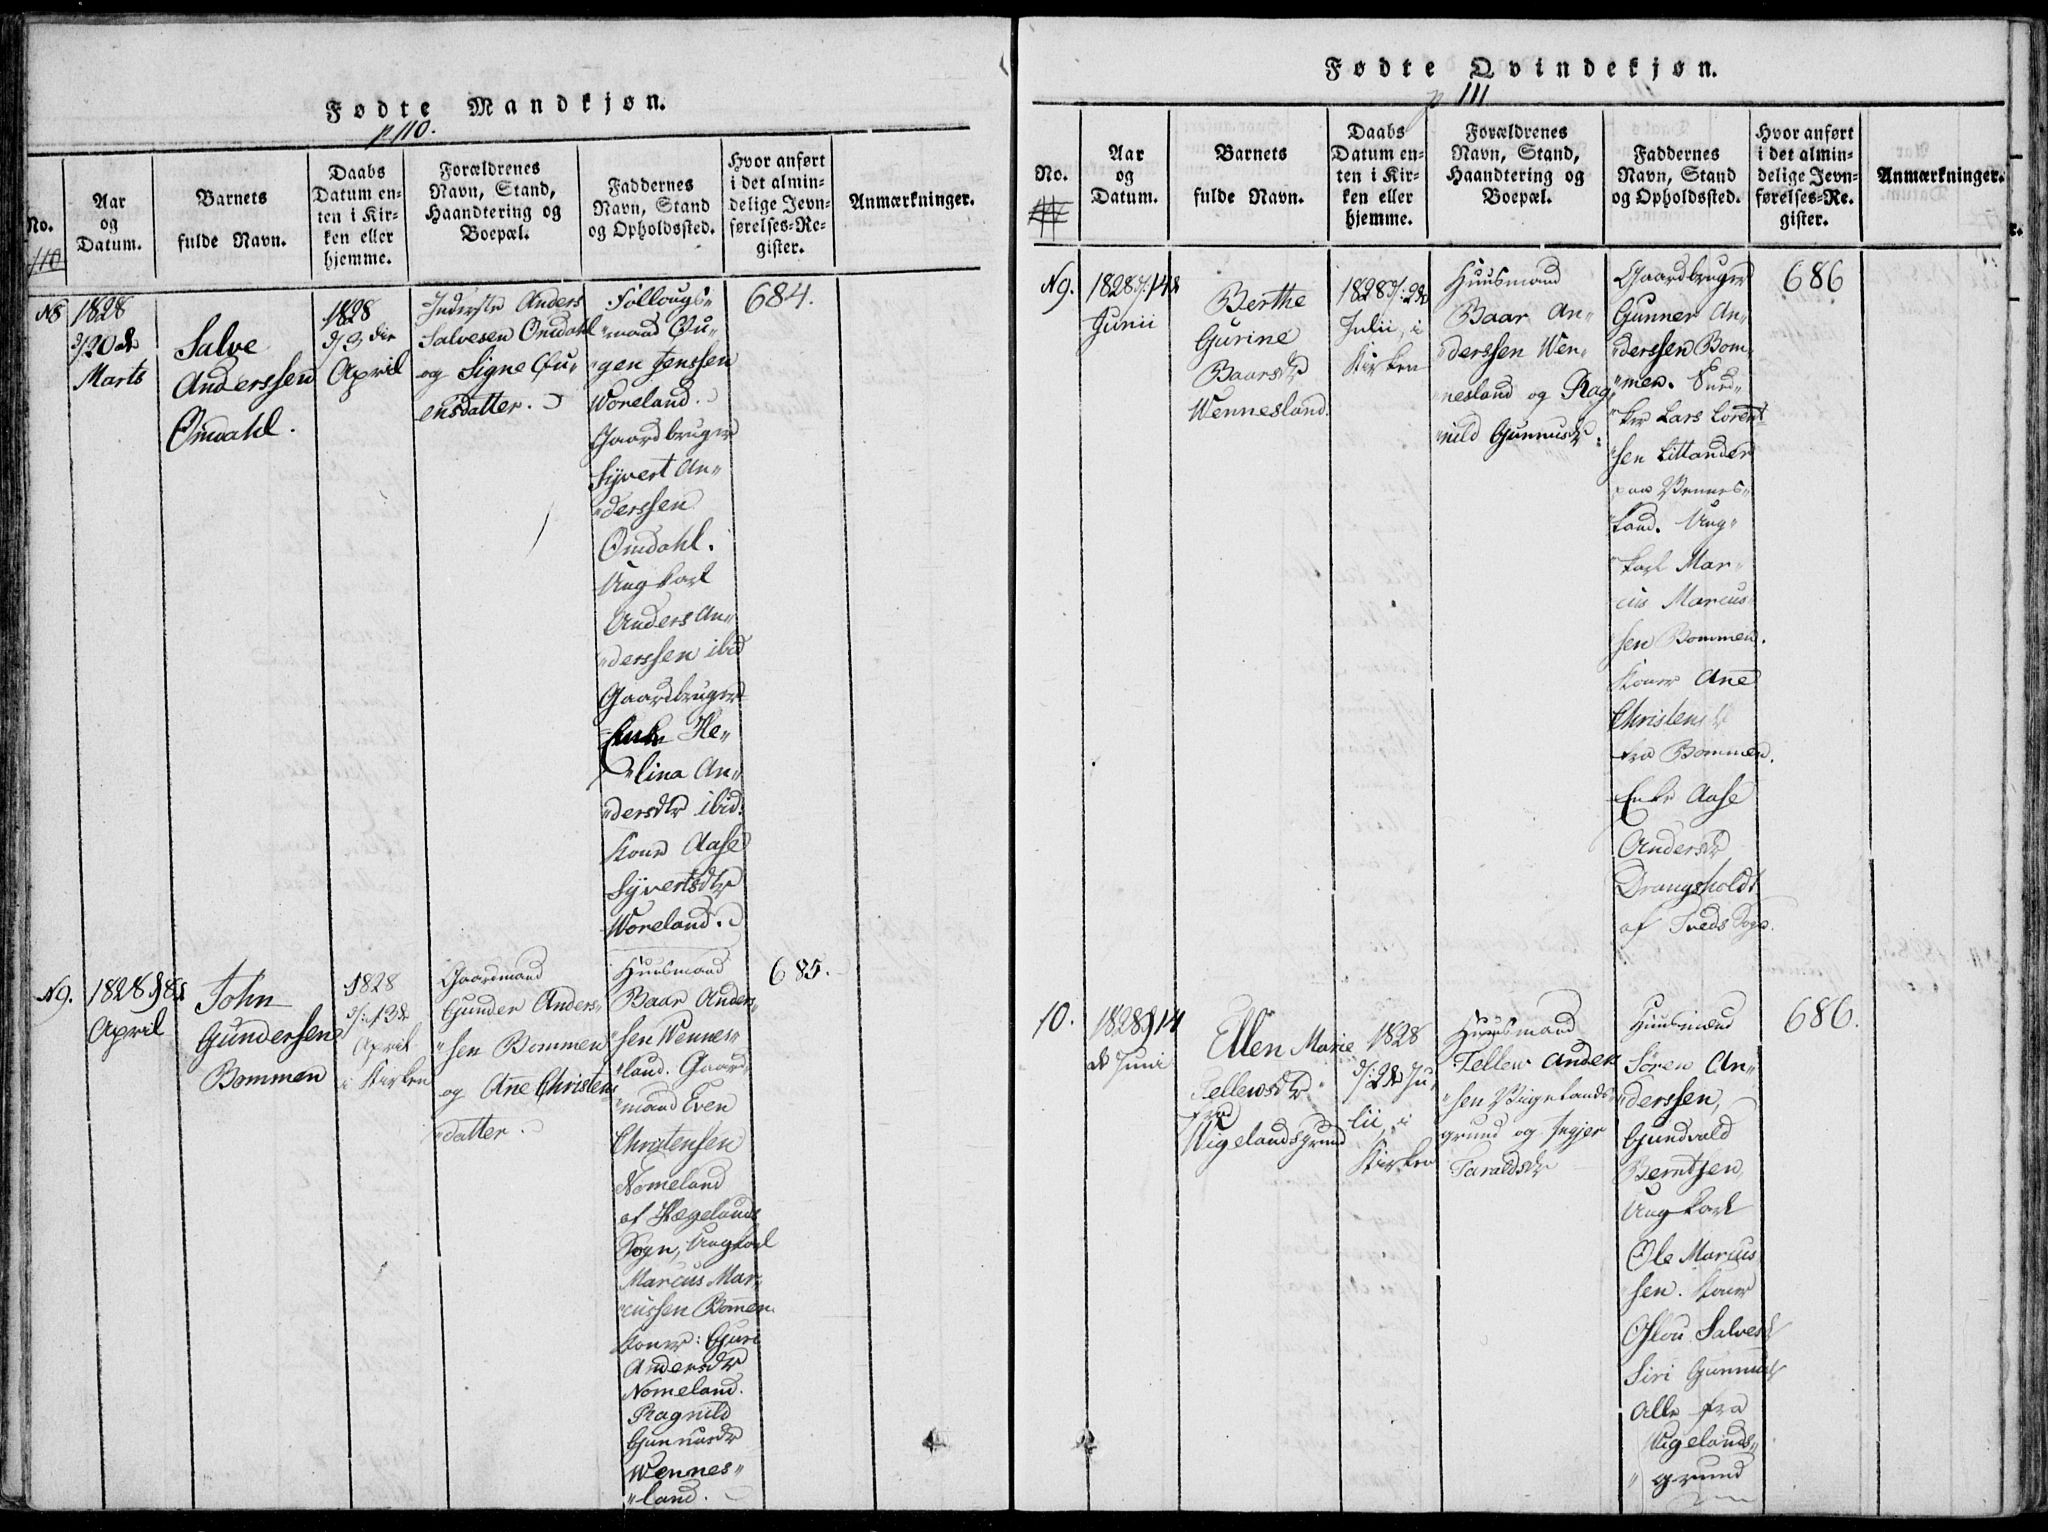 Fødte Mandkjøn.
p 110.
No.
110
Aar
og
Datum.
Barnets
fulde Navn.
Daabs
Datum en-
ten i Kir-
ken eller
hjemme.
Forældrenes
Navn, Stand,
Haandtering og
Boepæl.
Faddernes
Navn, Stand
og Opholdssted.
Hvor anført
i det almin-
delige Jevn-
førelses-Re-
gister.
Anmærkninger.
N8
1828
d/20de
Marts
Salve
Anderssen
Omdahl.
1828
d/3die
April
Inderste Anders
Salvesen Omdahl
og Signe Ou-
ensdatter.
Føllougs-
mand Ou-
gen Jenssen
Woreland.
Gaardbruger
Syvert An-
derssen
Omdahl.
Ungkarl
Anders An-
derssen ibid
Gaardbruger
Enke He-
lina An-
dersdtr ibid.
Kone Aase
Syvertsdtr
Woreland.
684.
N9.
1828 d/8de
April
John
Gundersen
Bommen
1828
d/:13de
April
i Kirken
Gaardmand
Gunder Anders-
sen Bommen
og Ane Christens
datter.
Huusmand
Baar Anders-
sen Wennes-
land. Gaard-
mand Even
Christensen
Nomeland
af Hægelands
Sogn, Ungkarl
Marcus Mar-
cussen Bomen.
Koner: Guri
Andersdtr
Nomeland.
Ragnild
Gunnusdtr
Wennes-
land.
685.
Fødte Qvindekjøn.
p 111
No.
Aar
og
Datum.
Barnets
fulde Navn.
Daabs
Datum en-
ten i Kir-
ken eller
hjemme.
Forældrenes
Navn, Stand,
Haandtering og
Boepæl.
Faddernes
Navn, Stand
og Opholdssted.
Hvor anført
i det almin-
delige Jevn-
førelses-Re-
gister.
Anmærkninger.
N9.
1828 d/:14de
Junii
Berthe
Gurine
Baarsdtr
Wennesland.
1828 d/:2de
Julii, i
Kirken
Huusmand
Baar An-
derssen Wen-
nesland og Rag-
nild Gunnusdtr.
Gaardbruger
Gunner An-
derssen Bom-
men.
Lars Lorent
sen Littander
paa Vennes-
land. Ung-
karl Mar-
cus Marcus
sen Bommen.
Koner Ane
Christensdtr
fra Bommen.
Enke Aase
Andersdtr
Drangsholdt
af Tveds Sogn.
686
10.
1828 d 14
de Juni
Ellen Marie
Tellewsdtr
fra
Wigelandsgrund
1828
d/:2de Ju-
lii, i
Kirken
Huusmand
Tellew Anders
sen Vigelands-
grund og Ingjer
Taraldsdtr
Huusmænd
Søren An-
derssen,
Gundvald
Berntzen,
Ungkarl
Ole Marcus
sen. Koner
Oslou Salvesd
Siri Gunnusd
Alle fra
Wigelands-
grund
686.